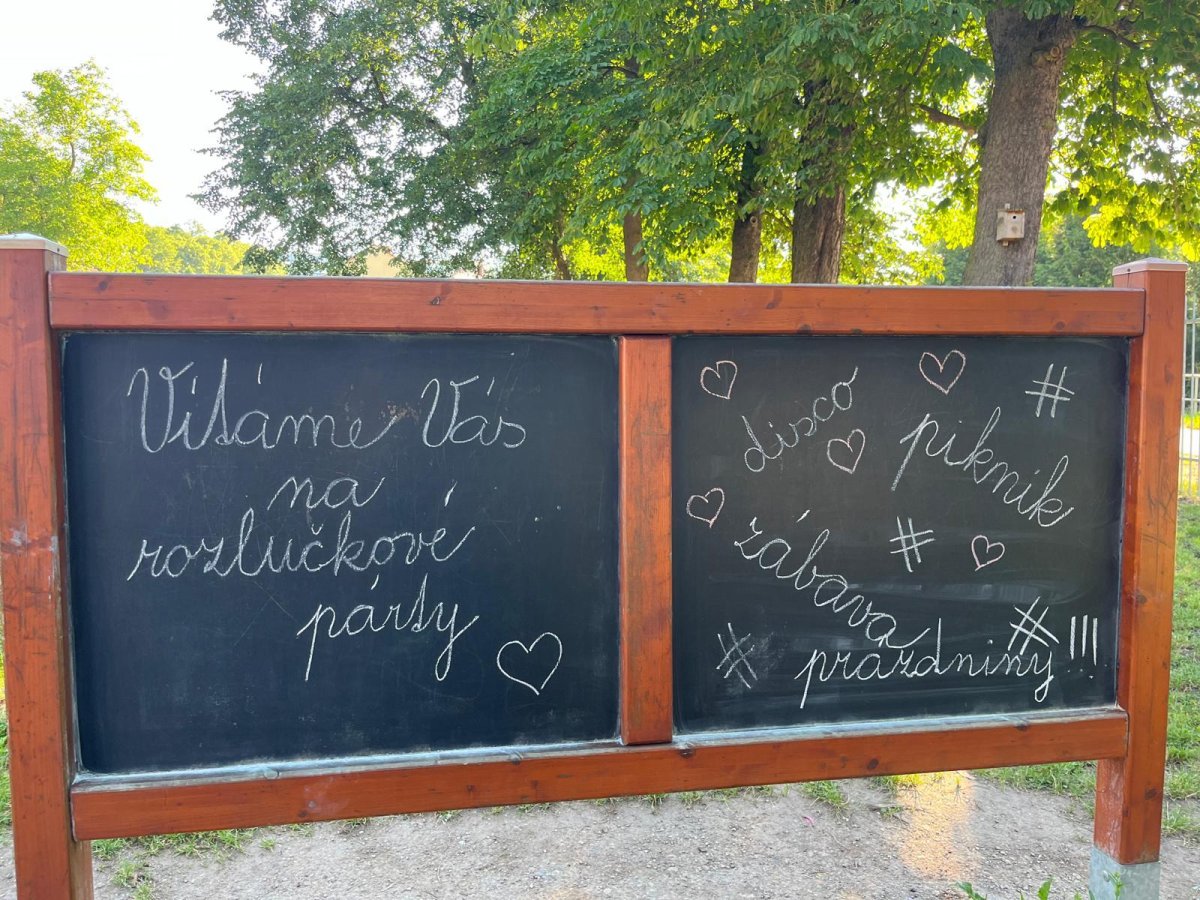 Vítáme Vás
na
rozlučkové
párty
disco
#
piknik
zábava
#
#
#
prázdniny!!!